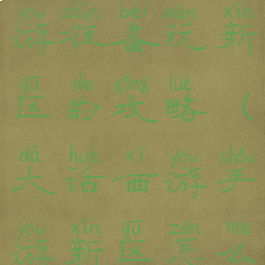 yóu zhǔn bèi wán xīn
游准备玩新
qū de gōng lüè
区的攻略（
dà huà xī yóu shǒu
大话西游手
yóu xīn qū zěn me
游新区怎么